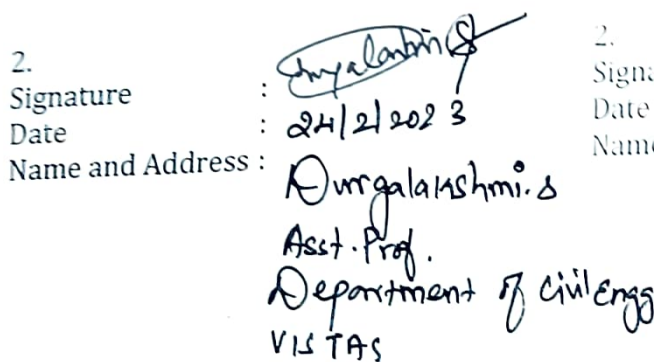 2.
Signature :
Date : 24/2/2023
Name and Address : Durgalakshmi.s
Asst. Prof.
Department of Civil Engg
VISTAS
2.
Signa
Date
Name